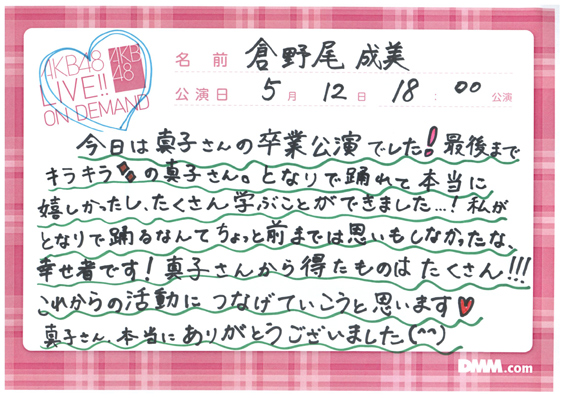 AKB48
LIVE!!
ON DEMAND
AKB
48
名前 倉野尾 成美
公演日 5月 12日 18:00公演
今日は真子さんの卒業公演でした!最後まで
キラキラの真子さん。となりで踊れて本当に
嬉しかったし、たくさん学ぶことができました...!私が
となりで踊るなんてちょっと前までは思いもしなかったな、
幸せ者です!真子さんから得たものはたくさん!!!
これからの活動につなげていこうと思います♥
真子さん、本当にありがとうございました(^^)
DMM.com